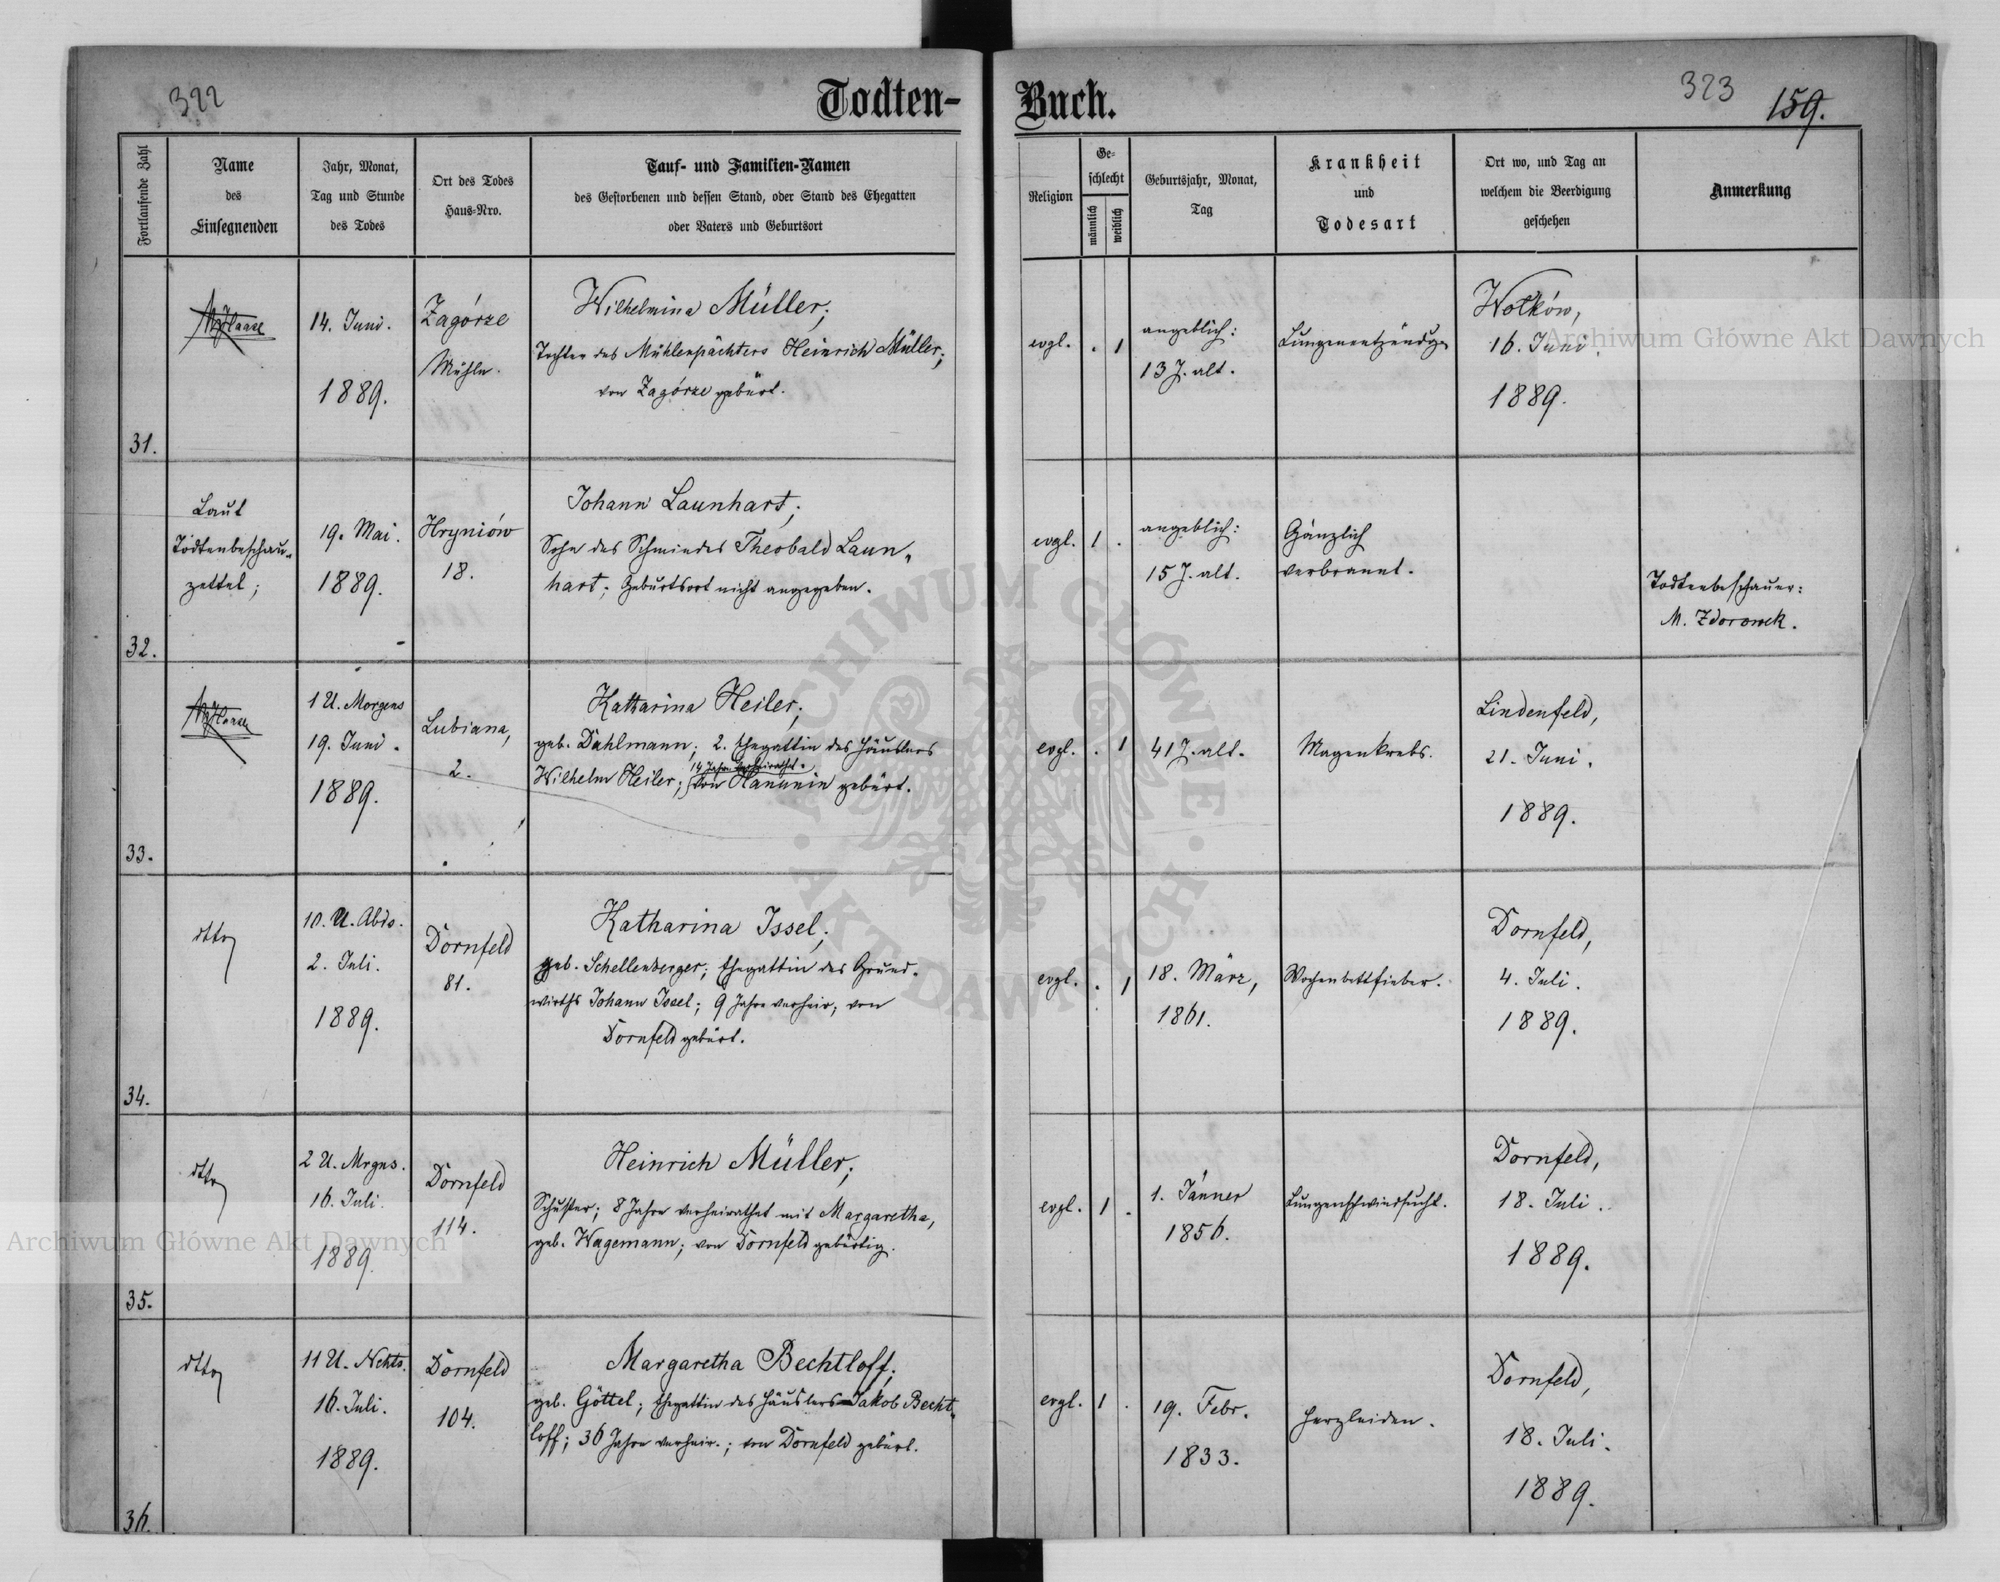 322
Todten-
Buch.
323
159.
Fortlaufende Zahl
Name
des
Einsegnenden
Jahr, Monat,
Tag und Stunde
des Todes
Ort des Todes
Haus-Nro.
Tauf- und Familien-Namen
des Gestorbenen und dessen Stand, oder Stand des Ehegatten
oder Vaters und Geburtsort
Religion
Ge-
schlecht
männlich
weiblich
Geburtsjahr, Monat,
Tag
Krankheit
und
Todesart
Ort wo, und Tag an
welchem die Beerdigung
geschehen
Anmerkung
31.
14. Juni.
1889.
Zagórze
Mühle.
Wilhelmina Müller;
Tochter des Mühlenpächters Heinrich Müller;
von Zagórze gebürt.
evgl.
. 1
angeblich:
13 J. alt.
Lungenentzündg.
Wołków,
16. Juni.
1889.
32.
Laut
Todtenbeschau-
zettel;
19. Mai.
1889.
Hryniów
18.
Johann Launhart;
Sohn des Schmiedes Theobald Laun-
hart; Geburtsort nicht angegeben.
evgl.
1 .
angeblich:
15 J. alt.
Gänzlich
verbrannt.
Todtenbeschauer:
M. Zdorowek.
33.
1 U. Morgens
19. Juni.
1889.
Lubiana,
2.
Katharina Heiler;
geb. Dahlmann; 2. Ehegattin des Häuslers
14 Jahre verheirathet.
Wilhelm Heiler; von Hanunin gebürt.
evgl.
. 1
41 J. alt.
Magenkrebs.
Lindenfeld,
21. Juni.
1889.
34.
dtto
10. U. Abds.
2. Juli.
1889.
Dornfeld
81.
Katharina Issel;
geb. Schellenberger; Ehegattin des Grund-
wirths Johann Issel; 9 Jahre verheir; von
Dornfeld gebürt.
evgl.
. 1
18. März,
1861.
Wochenbettfieber.
Dornfeld,
4. Juli.
1889.
35.
dtto
2 U. Mrgns.
16. Juli.
1889.
Dornfeld
114.
Heinrich Müller;
Schuster; 8 Jahre verheirathet mit Margaretha,
geb. Wagemann; von Dornfeld gebürtig.
evgl.
1 .
1. Jänner
1856.
Lungenschwindsucht.
Dornfeld,
18. Juli.
1889.
36.
dtto
11 U. Nchts.
16. Juli.
1889.
Dornfeld
104.
Margaretha Bechtloff;
geb. Göttel; Ehegattin des Häuslers Jakob Becht-
loff; 36 Jahre verheir.; von Dornfeld gebürt.
evgl.
1 .
19. Febr.
1833.
Herzleiden.
Dornfeld,
18. Juli.
1889.
Archiwum Główne Akt Dawnych
Archiwum Główne Akt Dawnych
ARCHIWUM GŁÓWNE
· AKT DAWNYCH ·